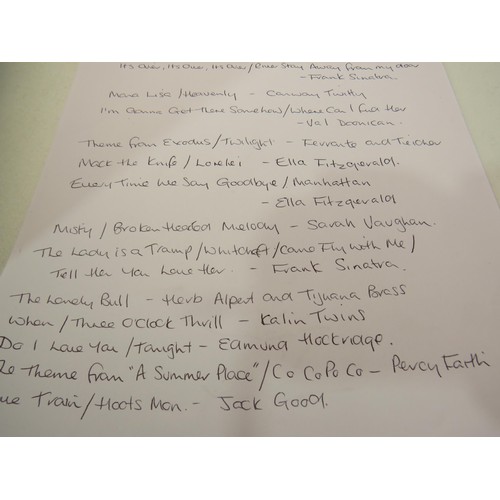 It's Over, It's Over, It's Over/River Stay Away from my door
- Frank Sinatra
Mona Lisa/Heavenly - Conway Twitty
I'm Gonna Get There Somehow/Where Can I Find Her
- Val Doonican.
Theme from Exodus/Twilight - Ferrante and Teicher
Mack the Knife/Lorelei - Ella Fitzgerald.
Every Time We Say Goodbye/Manhattan
- Ella Fitzgerald
Misty/Broken Hearted Melody - Sarah Vaughan.
The Lady is a Tramp/Witchcraft/Come Fly with Me/
Tell Her You Love Her. - Frank Sinatra.
The Lonely Bull - Herb Alpert and Tijuana Brass
When/Three O'Clock Thrill - Kalin Twins
Do I Love You/Tonight - Edmund Hockridge.
Theme from "A Summer Place"/Co Co Po Co - Percy Faith
ue Train/Hoots Mon. - Jack Good.